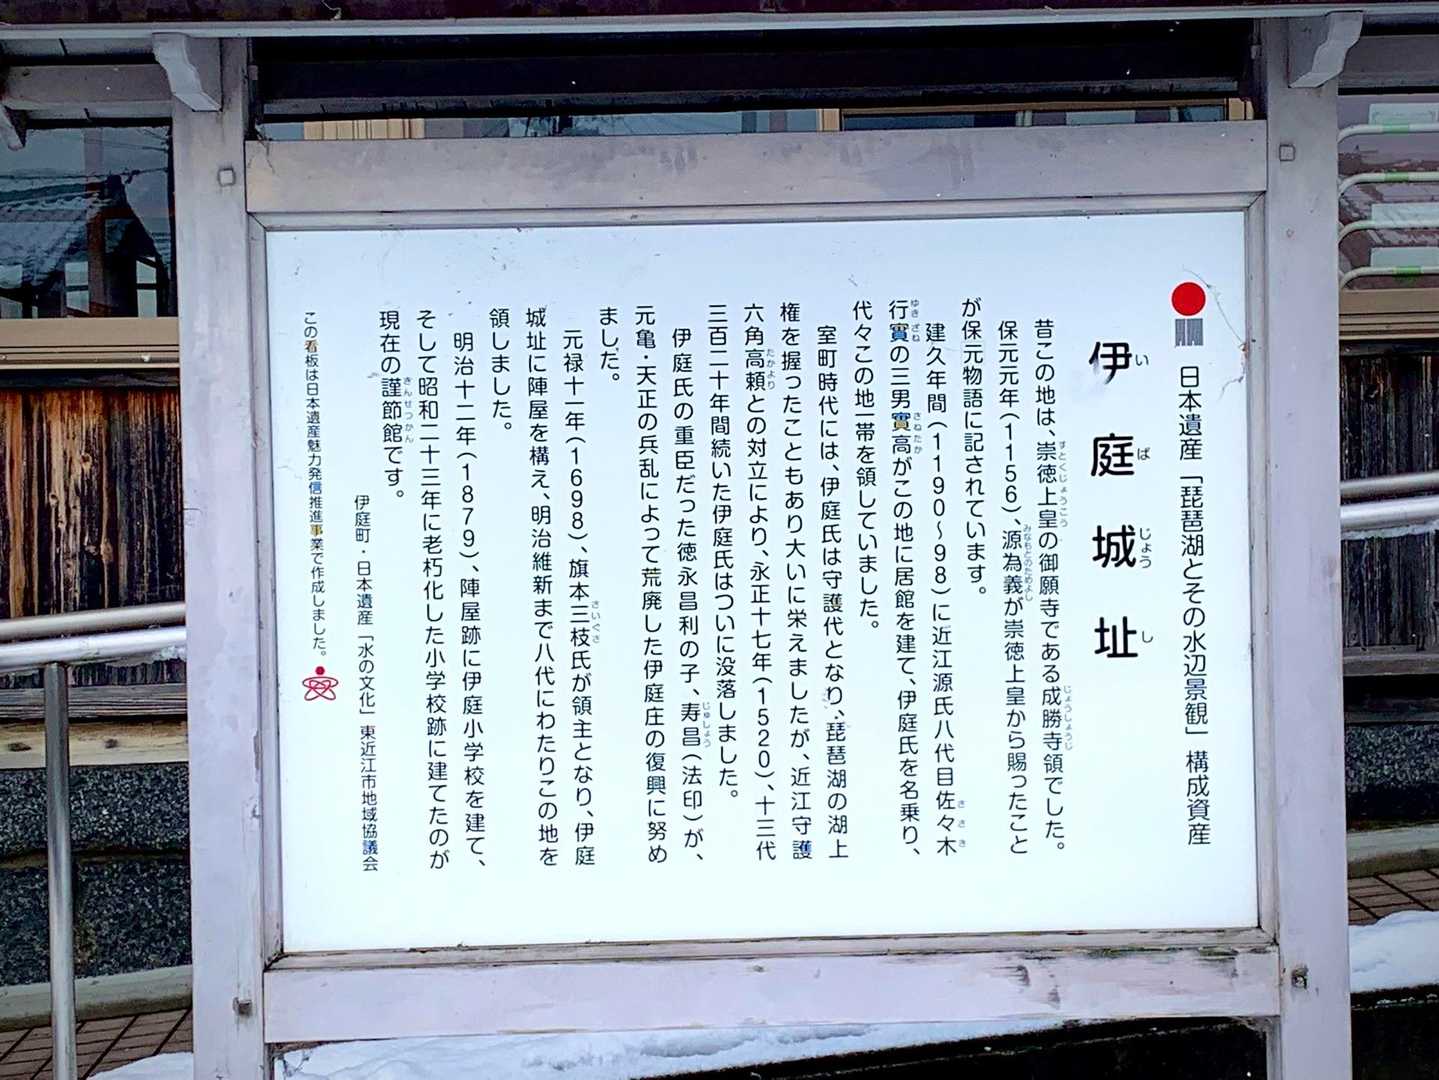 日本遺産「琵琶湖とその水辺景観」構成資産
伊庭城址
いばじょうし
昔この地は、崇徳上皇の御願寺である成勝寺領でした。
すとくじょうこう
じょうしょうじ
保元元年(1156)、源為義が崇徳上皇から賜ったこと
みなもとのためよし
が保元物語に記されています。
建久年間(1190〜98)に近江源氏八代目佐々木
ささき
行實の三男實高がこの地に居館を建て、伊庭氏を名乗り、
ゆきざね
さねたか
代々この地一帯を領していました。
室町時代には、伊庭氏は守護代となり、琵琶湖の湖上
権を握ったこともあり大いに栄えましたが、近江守護
六角高頼との対立により、永正十七年(1520)、十三代
たかより
三百二十年間続いた伊庭氏はついに没落しました。
伊庭氏の重臣だった徳永昌利の子、寿昌(法印)が、
じゅしょう
元亀・天正の兵乱によって荒廃した伊庭庄の復興に努め
ました。
元禄十一年(1698)、旗本三枝氏が領主となり、伊庭
さいぐさ
城址に陣屋を構え、明治維新まで八代にわたりこの地を
領しました。
明治十二年(1879)、陣屋跡に伊庭小学校を建て、
そして昭和二十三年に老朽化した小学校跡に建てたのが
現在の謹節館です。
きんせつかん
伊庭町・日本遺産「水の文化」東近江市地域協議会
この看板は日本遺産魅力発信推進事業で作成しました。